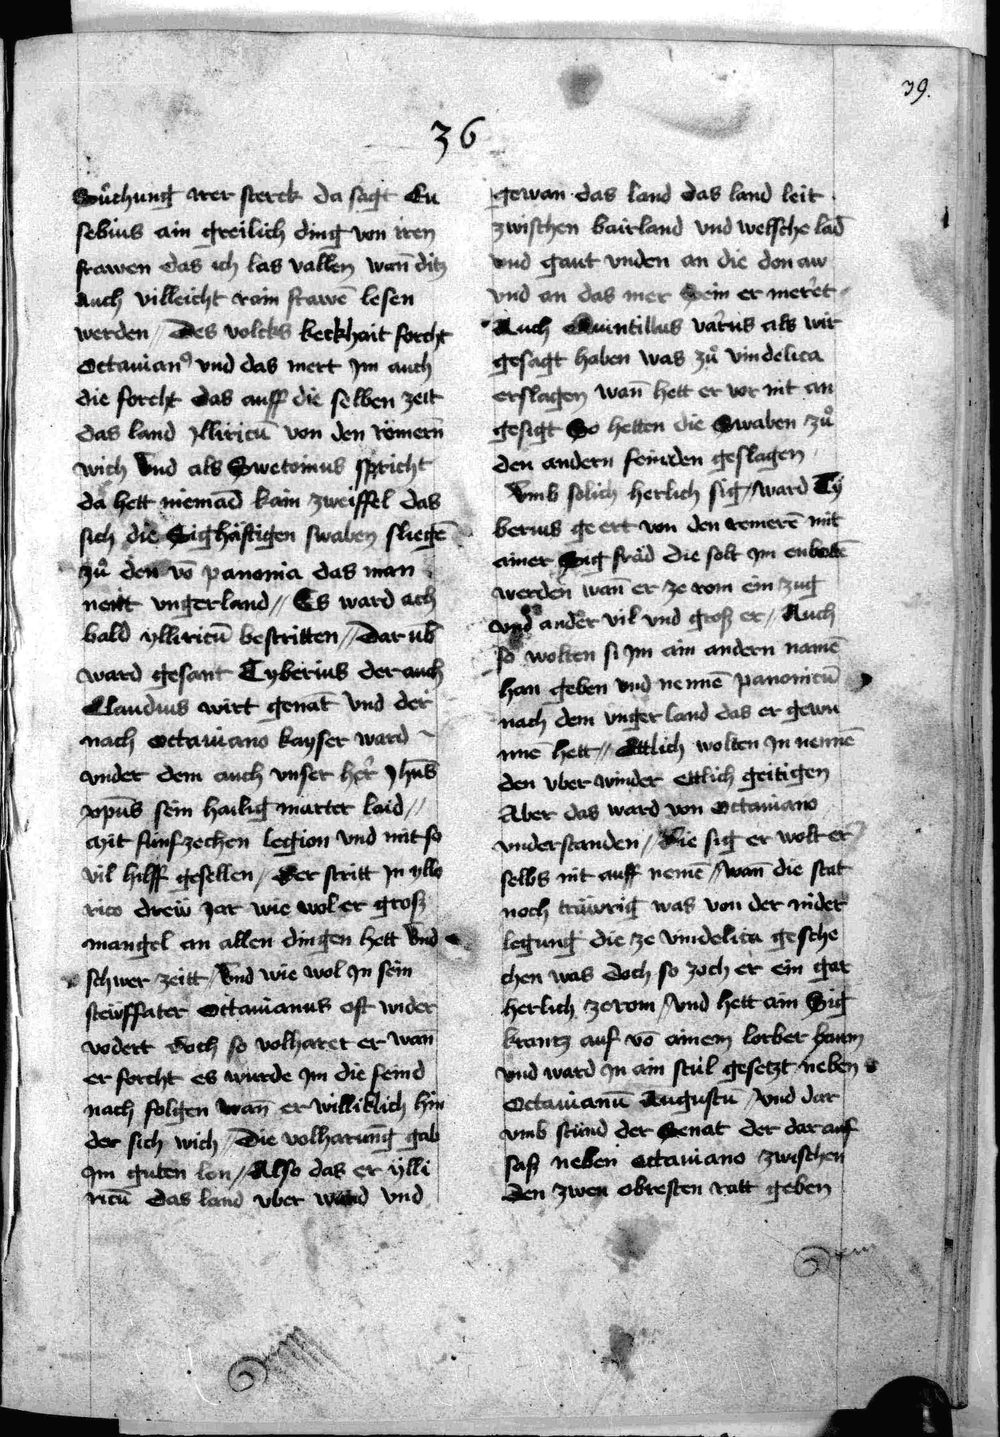 39.
36
Sůchung irer sterck da sagt Eu
sebius ain greilich ding von iren
frawen das ich las vallen wan̄ ditz
auch villeicht rain frawē lesen
werden // Des volcks keckhait forcht
Octauianꝰ vnd das mert Im auch
die forcht das auff die selben zeit
das land ylliricū von den Römern̄
wich vnd als Swetonius spricht
da hett niemād kain zweiffel das
sich die Sighäftigen swaben sliegē
zů den vō panonia das man
nent vngerland // Es ward ach
bald ylliricū bestritten // Dar vb̄
ward gesant Tyberius der auch
Claudius wirt genāt vnd der
nach Octauiano kayser ward ~
vnder dem auch vnser her̄ Jhūs
xp̄us sein hailig marter laid //
mit fünfzechen legion vnd mit so
vil hilff gesellen / Der stritt In ylli
rico dreü Jar wie wol er groß
mangel an allen dingen hett vnd
schwer zeitt / vnd wie wol In sein
steüffater Octauianus oft wider
vodert doch so volharet er wan̄
er forcht es wurde Im die feind
nach folgen wan̄ er williklich hin
der sich wich / Die volharung gab
Im guten lon / Also das er ylli
ricū das land vber wand vnd
gewan das land das land leit
zwischen bairland vnd welsche lād
vnd gaut vnden an die donaw
vnd an das mer Sein er meret
Auch Quintillus varus als wir
gesagt haben was zů vindelica
erslagen wan̄ hett er vor nit an
gesigt So hetten die Swaben zů
den andern feinden geslagen
Vmb solich herlich sig / ward Ty
berius geert von den remerē mit
ainer Sig fräd die solt Im enbottē
werden wan̄ er ze rom ein zug
vnd ander vil vnd groß er / Auch
so wolten si Im ain andern namē
han geben vnd nennē panonicū
nach dem vnger land das er gewu
nnē hett // Ettlich wolten In nennē
den vber winder ettlich geitigen
Aber das ward von Octauiano
vnderstanden / Die sig er wolt er
selbs nit auff nemē / wan̄ die stat
noch traẅrig was von der nider
legung die ze vindelica gesche
chen was doch so zoch er ein gar
herlich ze rom / vnd hett ain Sig
krantz auf vō ainem lorber bawm
vnd ward In ain stůl gesetzt neben
Octauianū Augustū / vnd dar
vmb stůnd der Senat der dar auf
saß neben Octauiano zwischen
den zwen obresten ratt geben